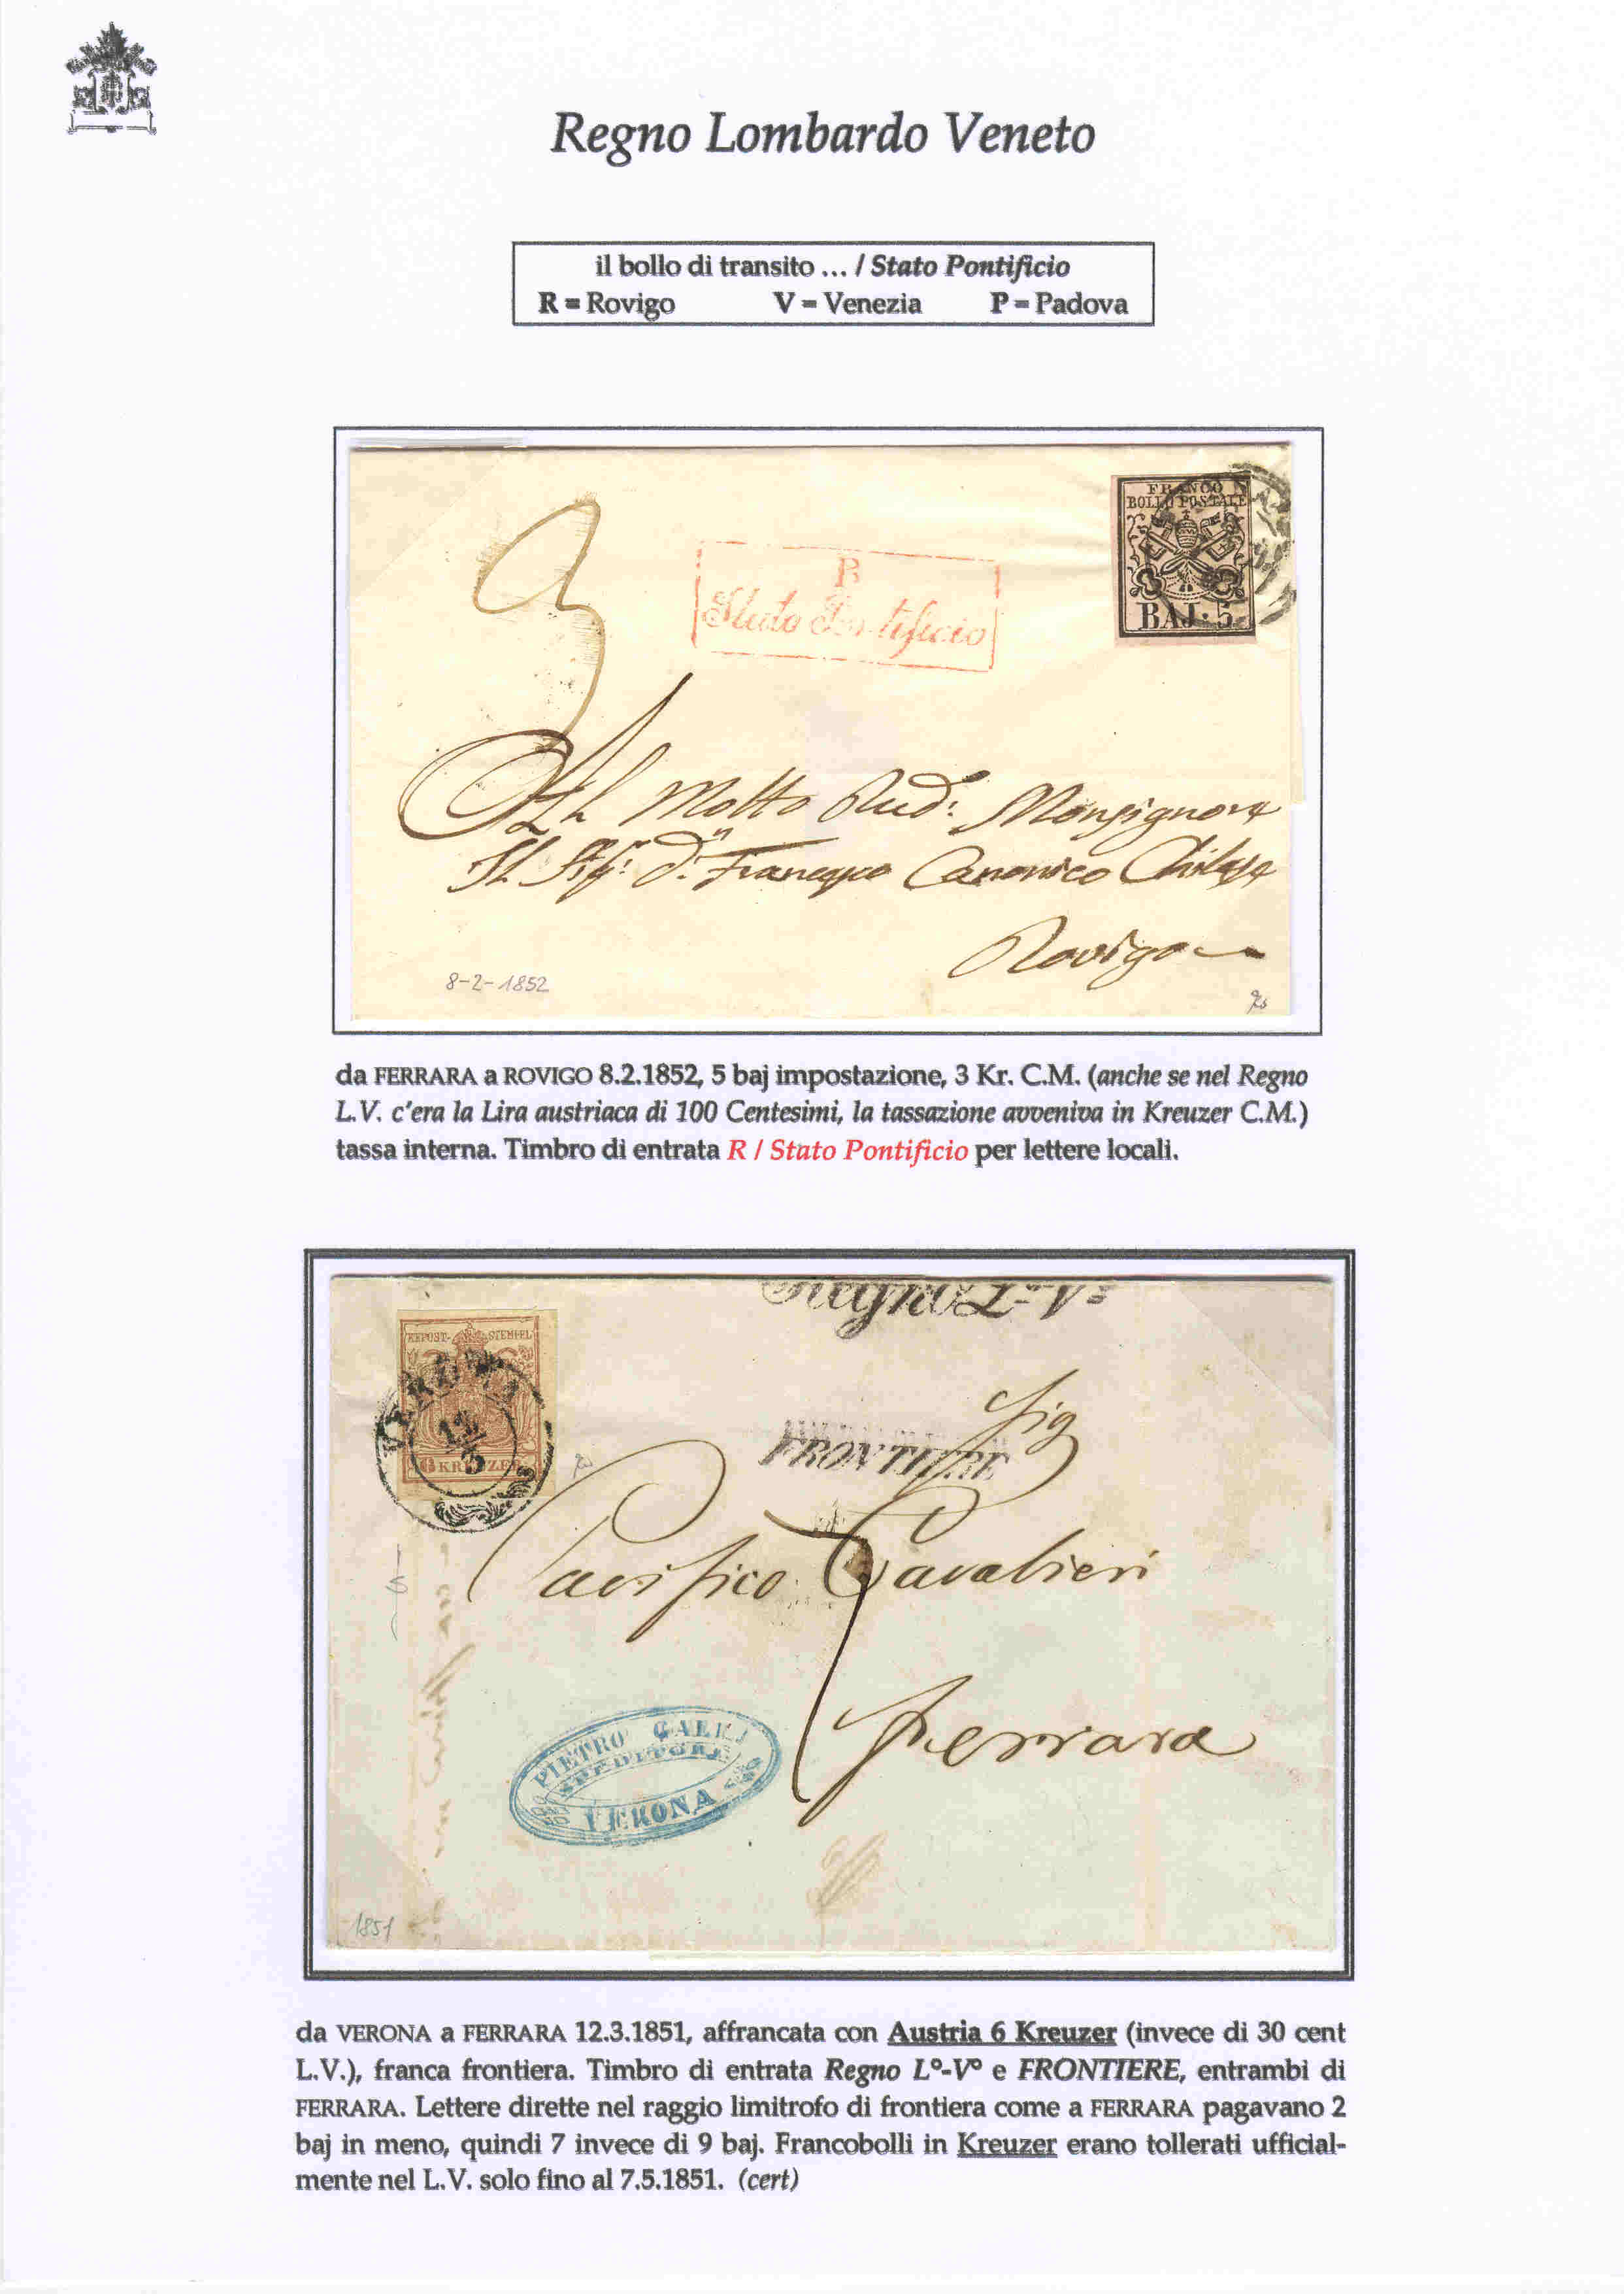 Regno Lombardo Veneto
il bollo di transito ... / Stato Pontificio
R = Rovigo V = Venezia P = Padova
FRANCO
BOLLO POSTALE
BAJ: 5
3
R
Stato Pontificio
Molto Rud: Monsignore
Il Sig: D: Francesco Canonico
Rovigo
8-2-1852
da FERRARA a ROVIGO 8.2.1852, 5 baj impostazione, 3 Kr. C.M. (anche se nel Regno
L.V. c'era la Lira austriaca di 100 Centesimi, la tassazione avveniva in Kreuzer C.M.)
tassa interna. Timbro di entrata R / Stato Pontificio per lettere locali.
Regno L°-V°
KKPOST-STEMPEL
VERONA
12
3
6 KREUZER
FRONTIERE
Sig
Pacifico Cavalieri
7
Ferrara
PIETRO GALLI
SPEDITORE
VERONA
1851
da VERONA a FERRARA 12.3.1851, affrancata con Austria 6 Kreuzer (invece di 30 cent
L.V.), franca frontiera. Timbro di entrata Regno L°-V° e FRONTIERE, entrambi di
FERRARA. Lettere dirette nel raggio limitrofo di frontiera come a FERRARA pagavano 2
baj in meno, quindi 7 invece di 9 baj. Francobolli in Kreuzer erano tollerati ufficial-
mente nel L.V. solo fino al 7.5.1851. (cert)